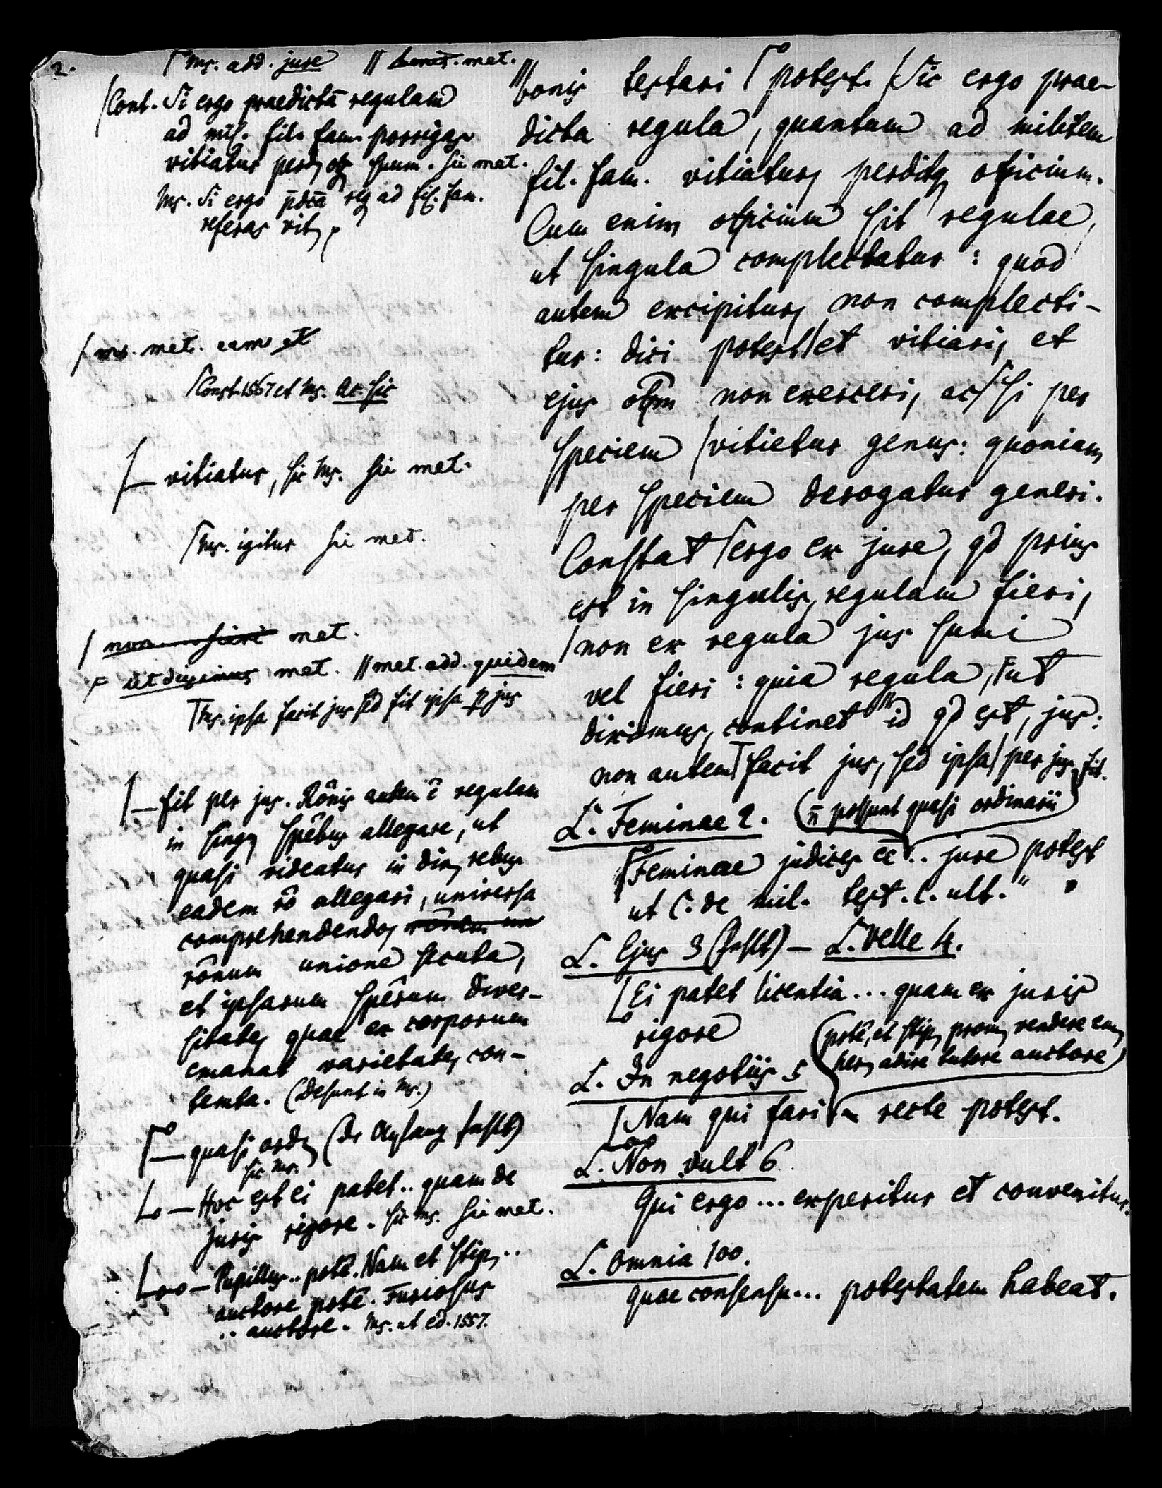 2.
Ms. add. jure // met.
Cont. Si ergo praedictā regulam
ad mil. fil. fam. porrigas
vitiatur perdit suum. sic met.
Ms. Si ergo p̄dctā reg ad fil. fam.
referas vit
ms. met. eam et
Const. 1567 et Ms. ac sic
vitiatur, sic Ms. sic met.
Ms. igitur sic met.
non met.
ut diximus met. // met. add. quidem
Ms. ipsa facit jus sed fit ipsa p jus
fit per jus. Rōnis autem ē regulam
in sing spēbus allegare, ut
quasi videatur in div rebus
eadem rō allegari, universa
comprehendendo,
rōnum unione secuta,
et ipsarum spērum diver-
sitate, quae ex corporum
emanat varietate, con-
tenta. (desunt in Ms.)
quasi ord (der Anfang fehlt)
sic Ms.
Hoc est ei patet .. quam de
juris rigore. sic Ms. sic met.
Pupillus .. potē. Nam et stip ..
auctore potē. Furiosus
.. auctore. Ms. ut ed. 1557.
bonis testari potest. Sic ergo prae-
dicta regula, quantum ad militem
fil. fam. vitiatur, perdit officium.
Cum enim officium sit regulae,
ut singula complectatur: quod
autem excipitur, non complecti-
tur: dici potest et vitiari, et
ejus non exerceri, ac si per
speciem vitietur genus: quoniam
per speciem derogatur generi.
Constat ergo ex jure, qd prius
est in singulis, regulam fieri,
non ex regula jus sumi
vel fieri: quia regula, ut
diximus, continet id qd est, jus:
non autem facit jus, sed ipsa per jus fit.
L. Feminae 2. (n̄ possunt quasi ordinarii)
Feminae judices ee .. jure potest
ut C. de mil. test. l. ult.
L. Ejus 3 (fehlt) – L. Velle 4.
Ei patet licentia ... quam ex juris
rigore
(potē, et stip, prom, vendere eam
her, adire tutore auctore)
L. In negotiis 5
Nam qui fari .. recte potest.
L. Non vult 6
Qui ergo ... experitur et convenitur.
L. Omnia 100.
quae consensu ... potestatem habeat.